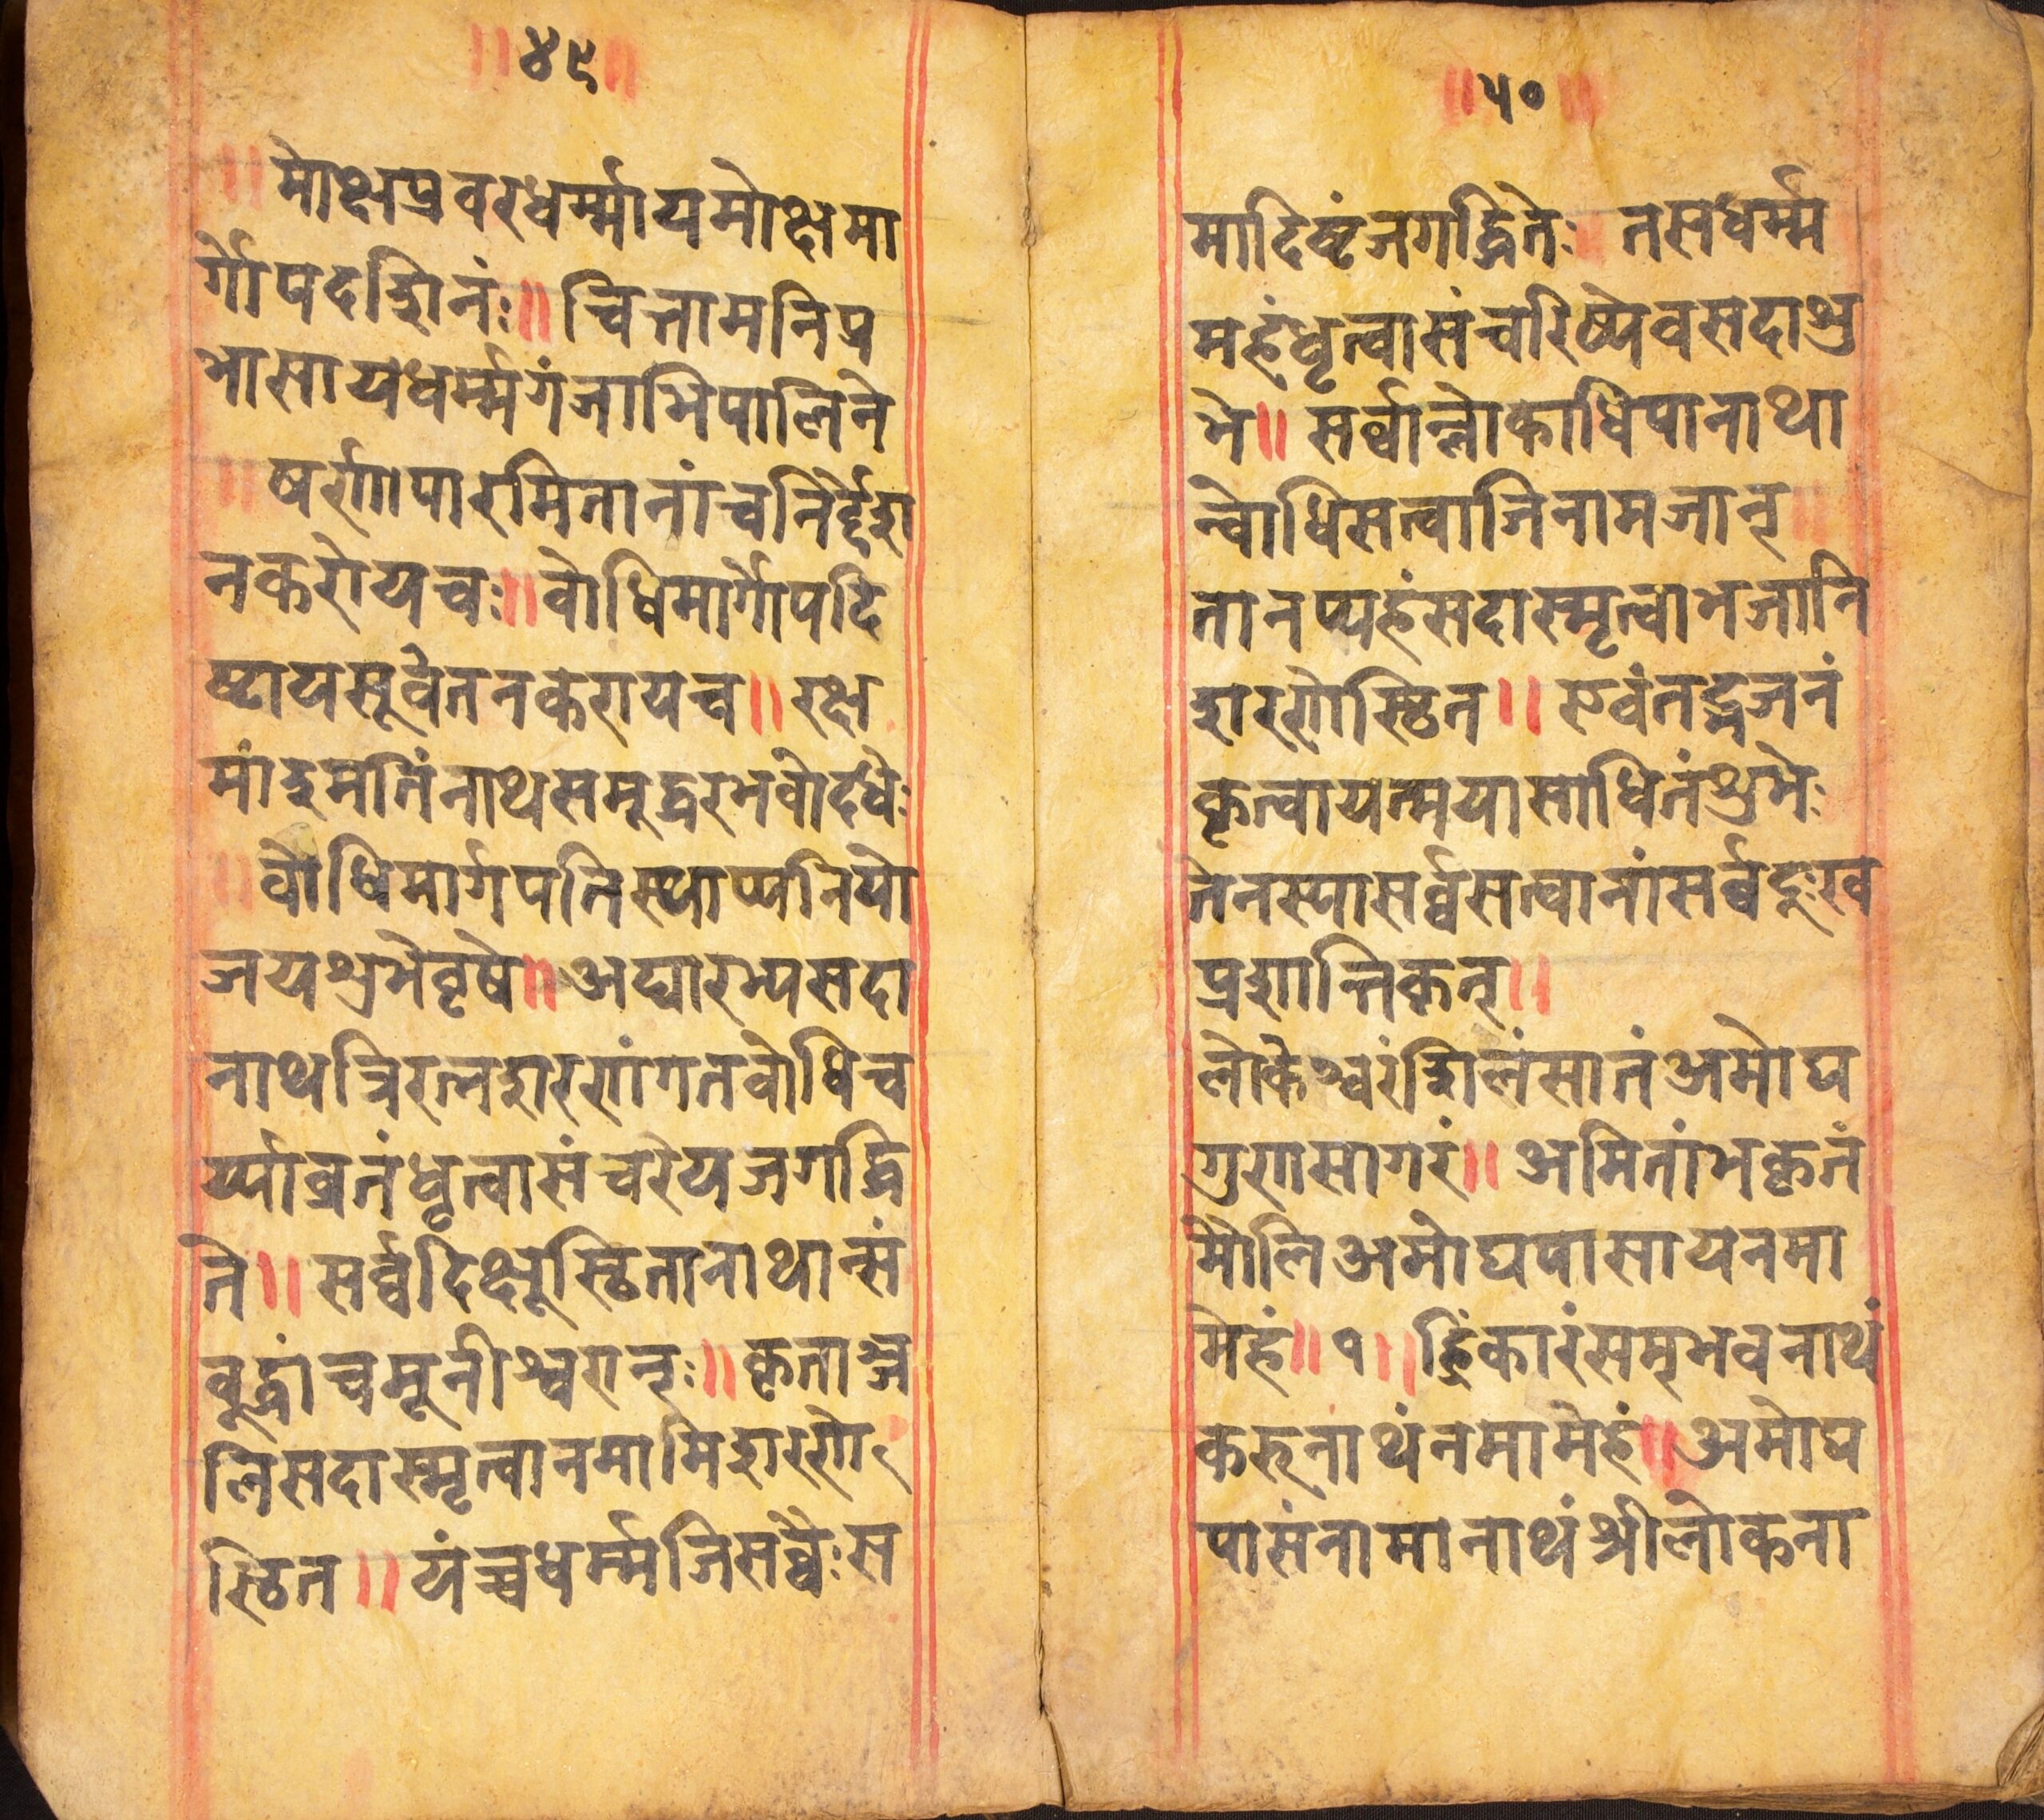 ॥४९॥
॥मोक्षप्रवरधर्म्मायमोक्षमा
र्गोपदर्द्शिनंः॥चिन्तामनिप्र
भासायधर्म्मगंजाभिपालिने
॥षर्ण्णापारमितानांचनिर्द्देश
नकरोयचः॥वोधिमार्गोपदि
ष्टायसूर्वतनकरायच॥रक्ष
मांदुमतिंनाथसमूद्धरभवोदधेः
॥वोधिमार्गपतिस्थाप्यनियो
जयशुभेवृषे॥अद्यारभ्यसदा
नाथत्रिरत्नशरणंगतवोधिच
र्य्याव्रतंधृत्वासंचरेयजगद्धि
ते॥सर्व्वदिक्षूस्थितानाथान्सं
वूद्धांचमूनीश्वरान्ः॥कृताञ्ज
लिसदास्मृत्वानमामिशरणे
स्थित॥यंच्चधर्म्मजिसर्व्वैःस
॥५०॥
मादिष्टंजगद्धितेः॥तसधर्म्म
महंधृत्वासंचरिष्येवसदाशु
भे॥सर्व्वान्लोकाधिपानाथा
न्वोधिसत्वाजिनामजान्॥
तानप्यहंसदास्मृत्वाभजानि
शरणेस्थित॥एवंतद्भजनं
कृत्वायत्मयासाधितंशुभेः
तेनस्यासर्व्वसत्वानांसर्व्वदुःख
प्रशान्तिकृत्॥
लोकेश्वरंशिलंसातंअमोघ
गुणसागरं॥अमितांभकृतं
मौलिअमोघपासायनमा
मेहं॥१॥ह्रिंकारंसम्भवनाथं
करुनाथंनमामेहं॥अमोघ
पासंनामानाथंश्रीलोकना